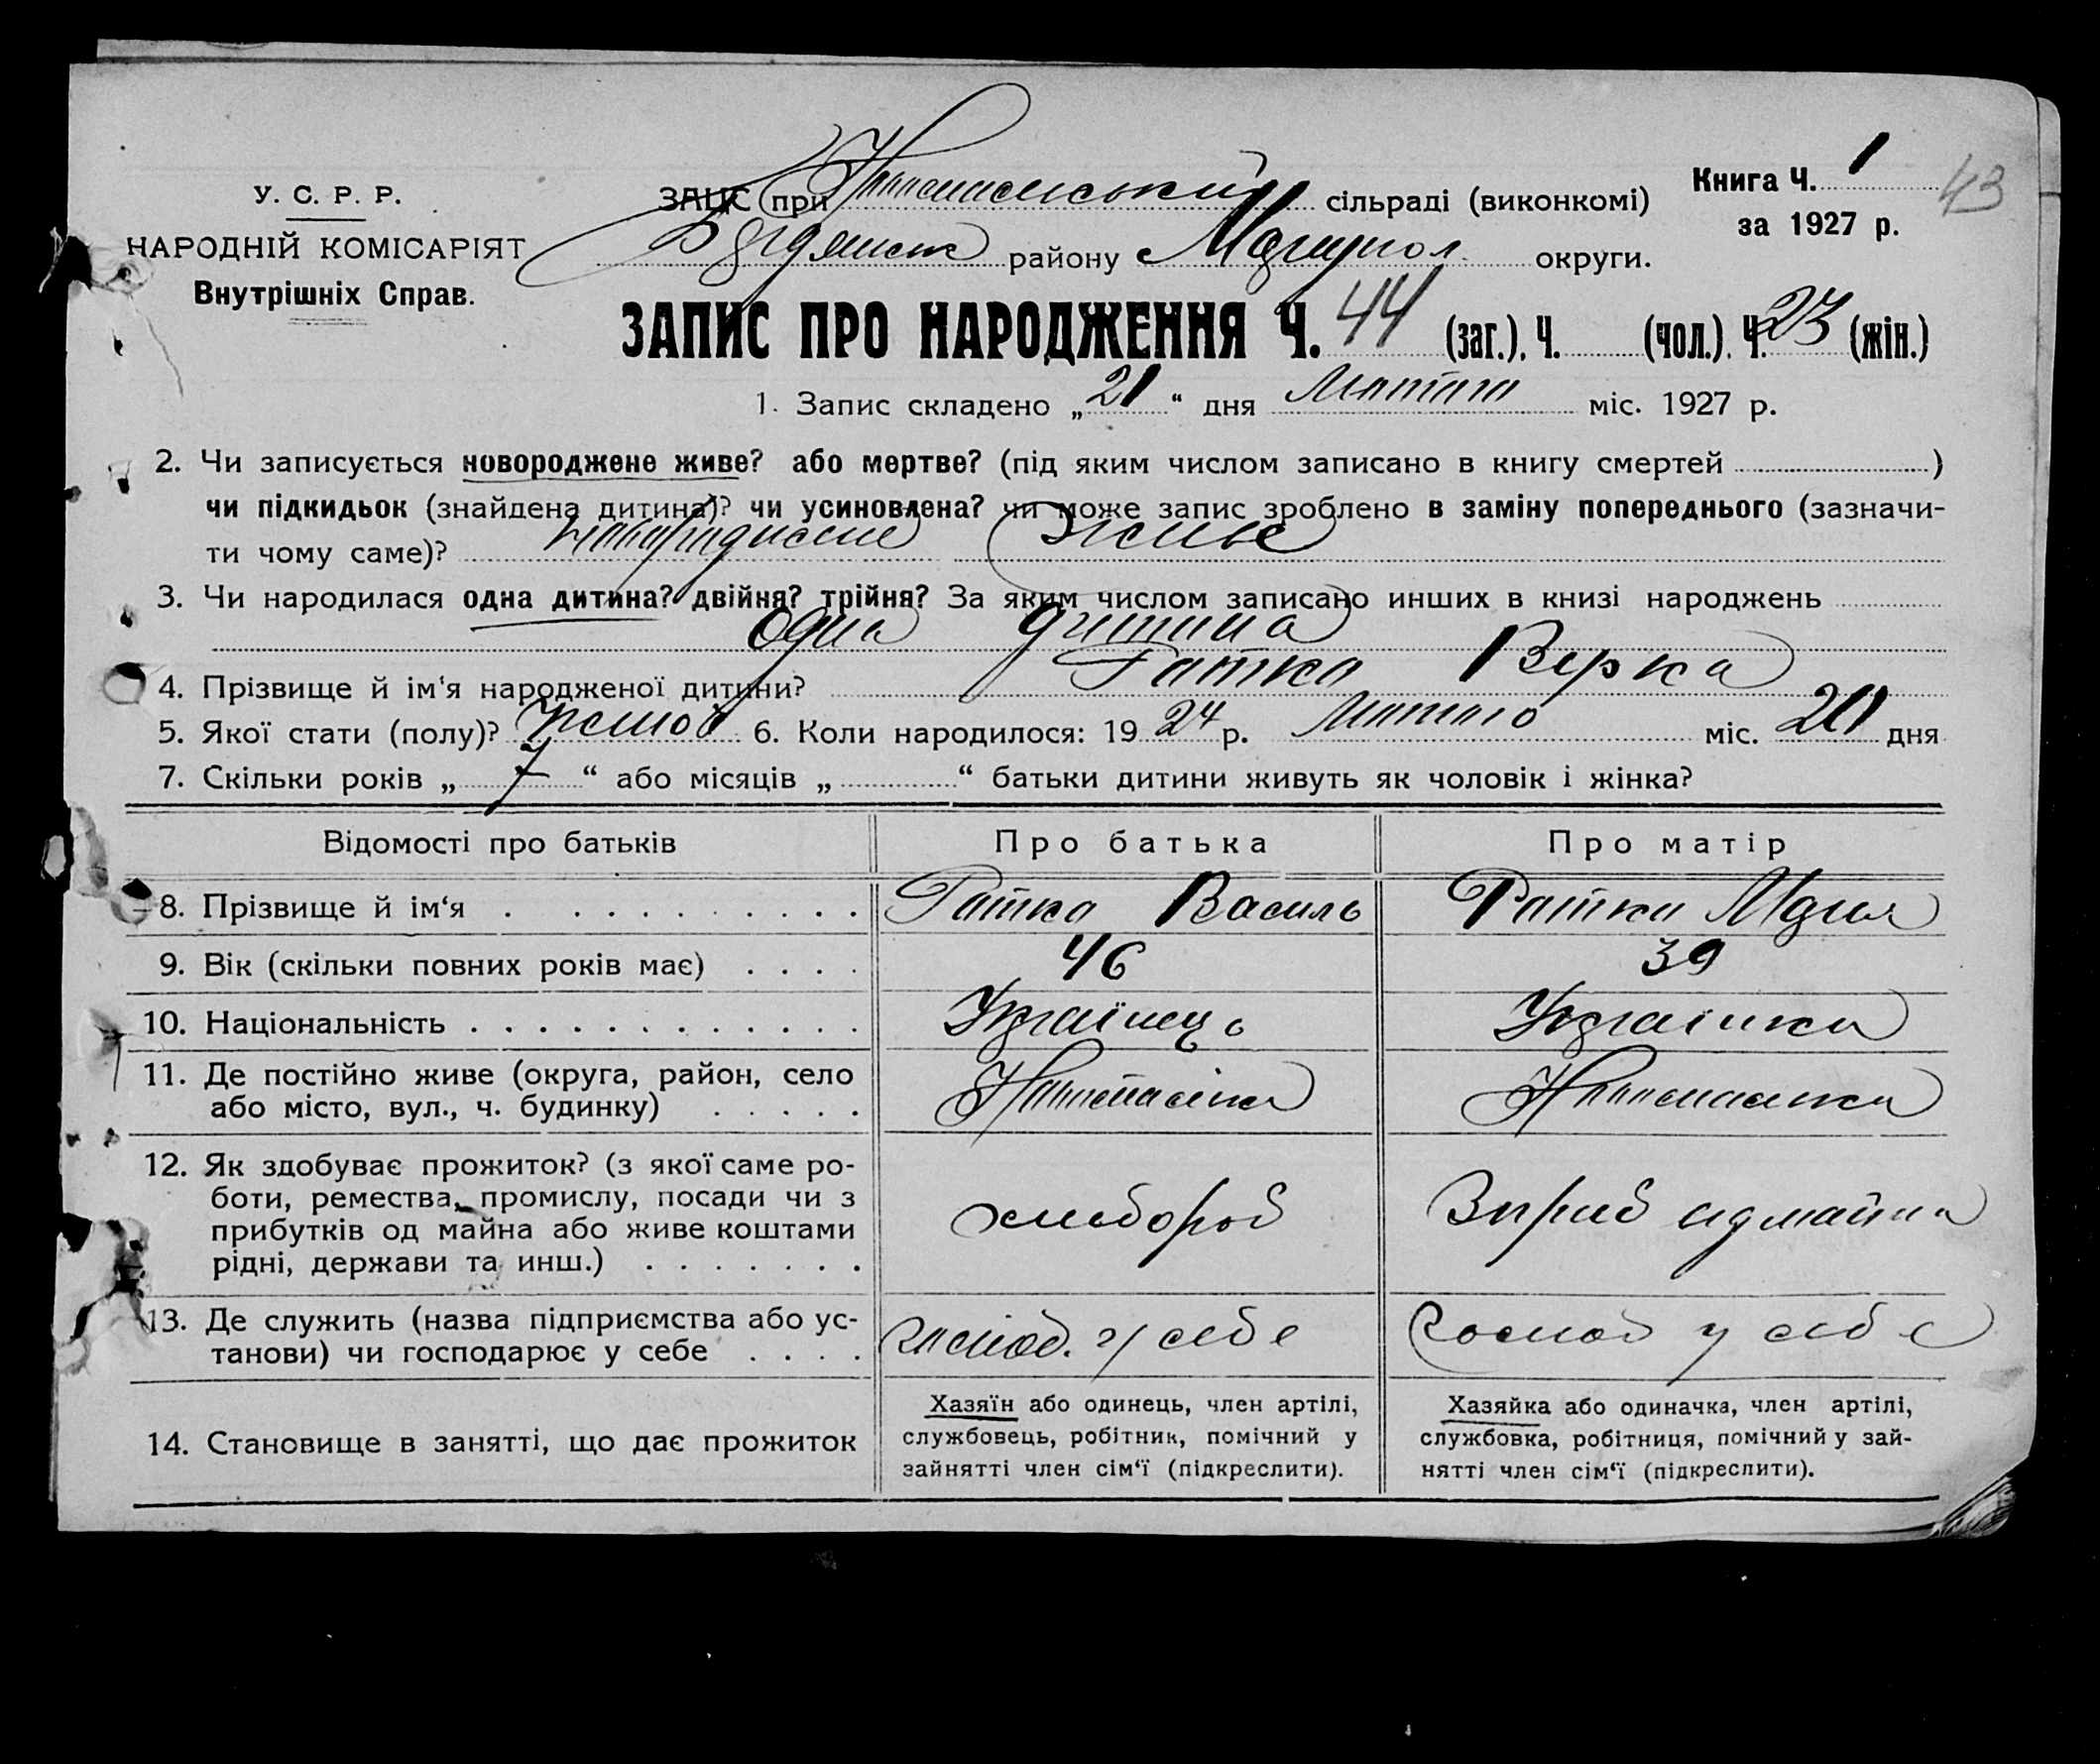 У. С. Р. Р.
НАРОДНІЙ КОМІСАРІЯТ
Внутрішніх Справ.
Книга Ч. 1
43
за 1927 р.
ЗАЦС при сільраді (виконкомі)
Бердянськ району Маріупол округи.
ЗАПИС ПРО НАРОДЖЕННЯ Ч. 44 (заг.), Ч. (чол.). Ч. 23 (жін.)
1. Запис складено „21“ дня Лютого міс. 1927 р.
2. Чи записується новороджене живе? або мертве? (під яким числом записано в книгу смертей )
чи підкидьок (знайдена дитина)? чи усиновлена? чи може запис зроблено в заміну попереднього (зазначи-
ти чому саме)? живе
3. Чи народилася одна дитина? двійня? трійня? За яким числом записано инших в книзі народжень
Одна дитина
4. Прізвище й ім‘я народженої дитини? Гатка Вірка
5. Якої стати (полу)? жіноч 6. Коли народилося: 19 р. Лютого міс. 20 дня
7. Скільки років „7“ або місяців „ “ батьки дитини живуть як чоловік і жінка?
Відомості про батьків Про батька Про матір
8. Прізвище й ім‘я Гатка Василь Гатка Марія
9. Вік (скільки повних років має) 46 39
10. Національність Українець Українка
11. Де постійно живе (округа, район, село
або місто, вул., ч. будинку)
12. Як здобуває прожиток? (з якої саме ро-
боти, ремества, промислу, посади чи з
прибутків од майна або живе коштами
рідні, держави та инш.) хлибороб
13. Де служить (назва підприємства або ус-
танови) чи господарює у себе господ. у себе господ у себе
14. Становище в занятті, що дає прожиток
Хазяїн або одинець, член артілі,
службовець, робітник, помічний у
зайнятті член сім‘ї (підкреслити).
Хазяйка або одиначка, член артілі,
службовка, робітниця, помічний у зай-
нятті член сім‘ї (підкреслити).